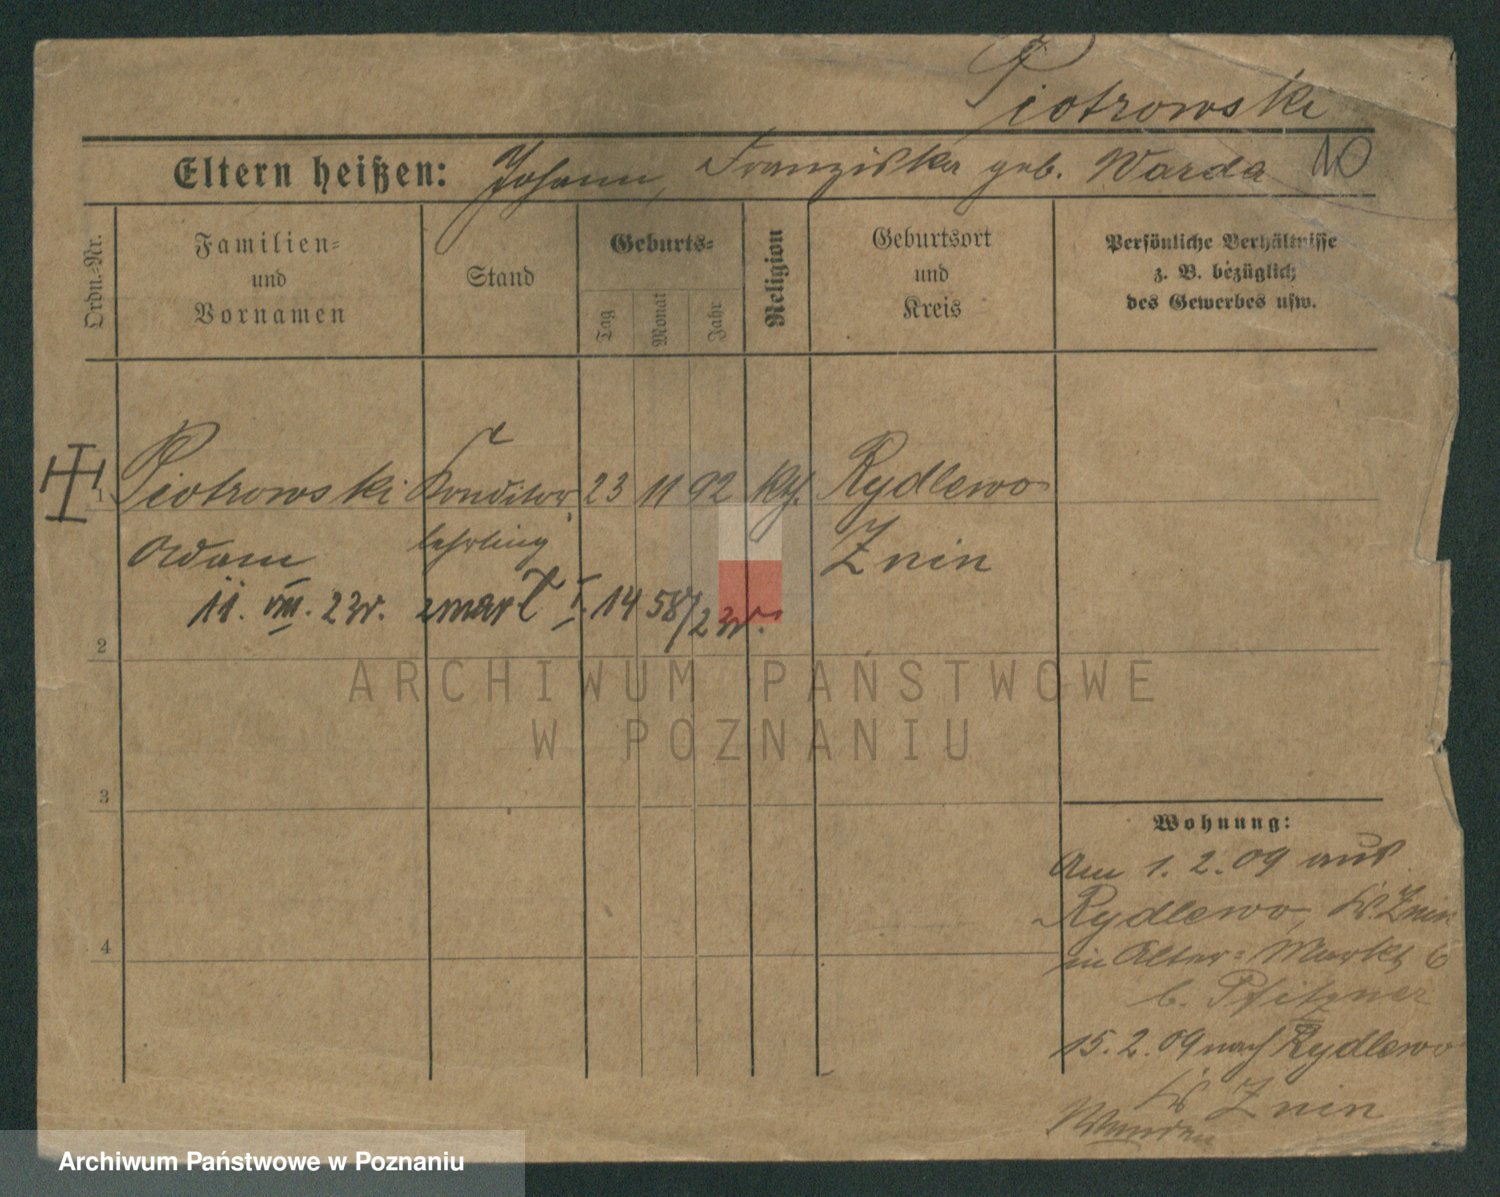 Piotrowski
Eltern heißen: Johann, Franziska geb. Warda 10
Ordn.=Nr.
Familien=
und
Vornamen
Stand
Geburts=
Tag
Monat
Jahr
Religion
Geburtsort
und
Kreis
Persönliche Verhältnisse
z. B. bezüglich
des Gewerbes usw.
1 Piotrowski Konditor 23 11 92 kth. Rydlewo
Adam lehrling Znin
11. VIII. 23r. zmarł I. 14 58/23r.
2
3
4
Wohnung:
Am 1. 2. 09 aus
Rydlewo, Kr. Znin
in Alter=Markt 6
b. Pfitzner
15. 2. 09 nach Rydlewo
Kr Znin
Wenden
ARCHIWUM PAŃSTWOWE
W POZNANIU
Archiwum Państwowe w Poznaniu